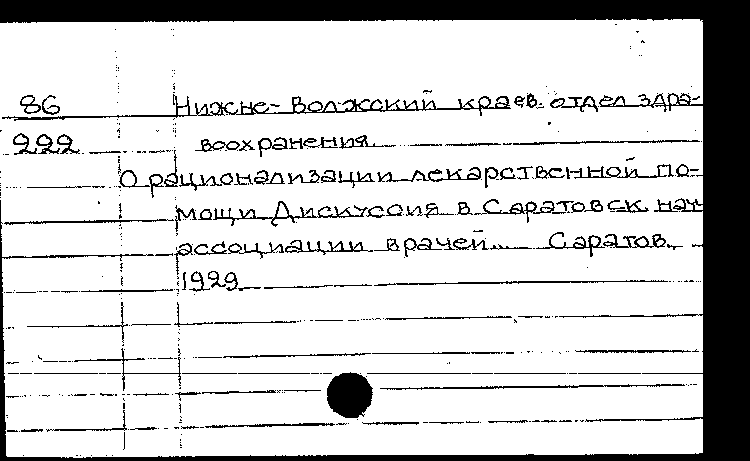 86 Нижне-Волжский краев. отдел здра-
222 воохранения.
О рационализации лекарственной по-
мощи Дискуссия в Саратовск. науч.
ассоциации врачей... Саратов.
1929